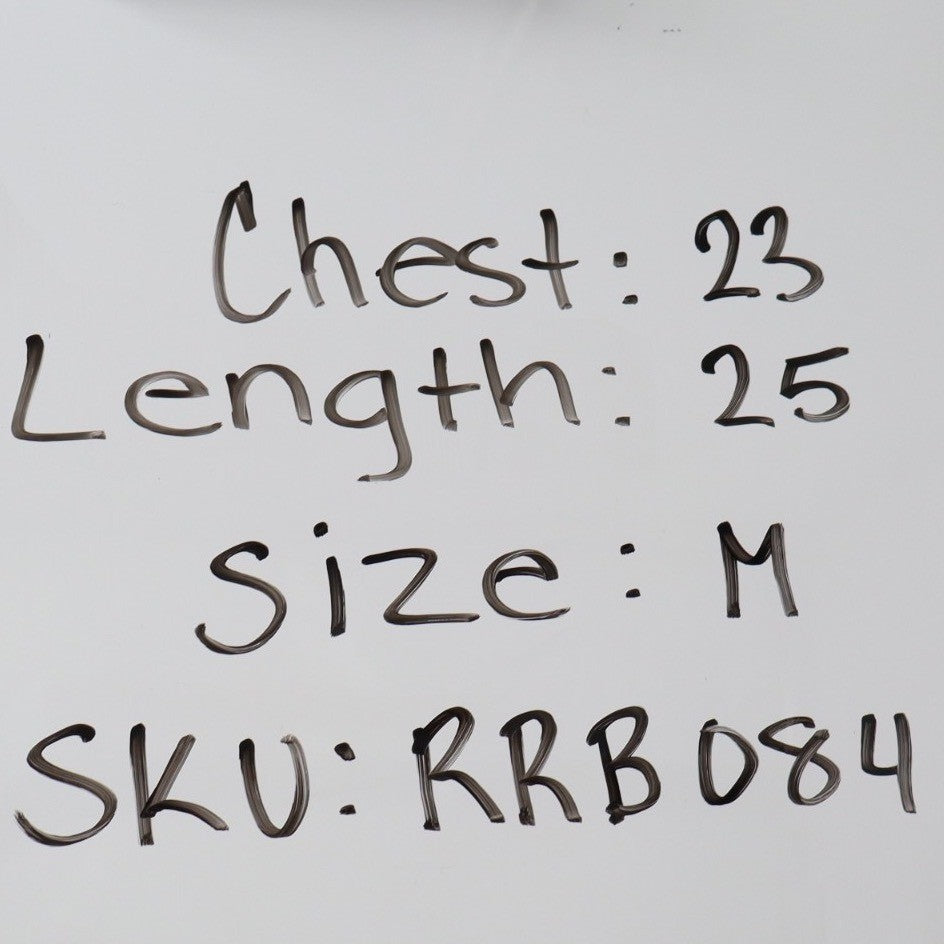 Chest: 23
Length: 25
Size: M
SKU: RRB084